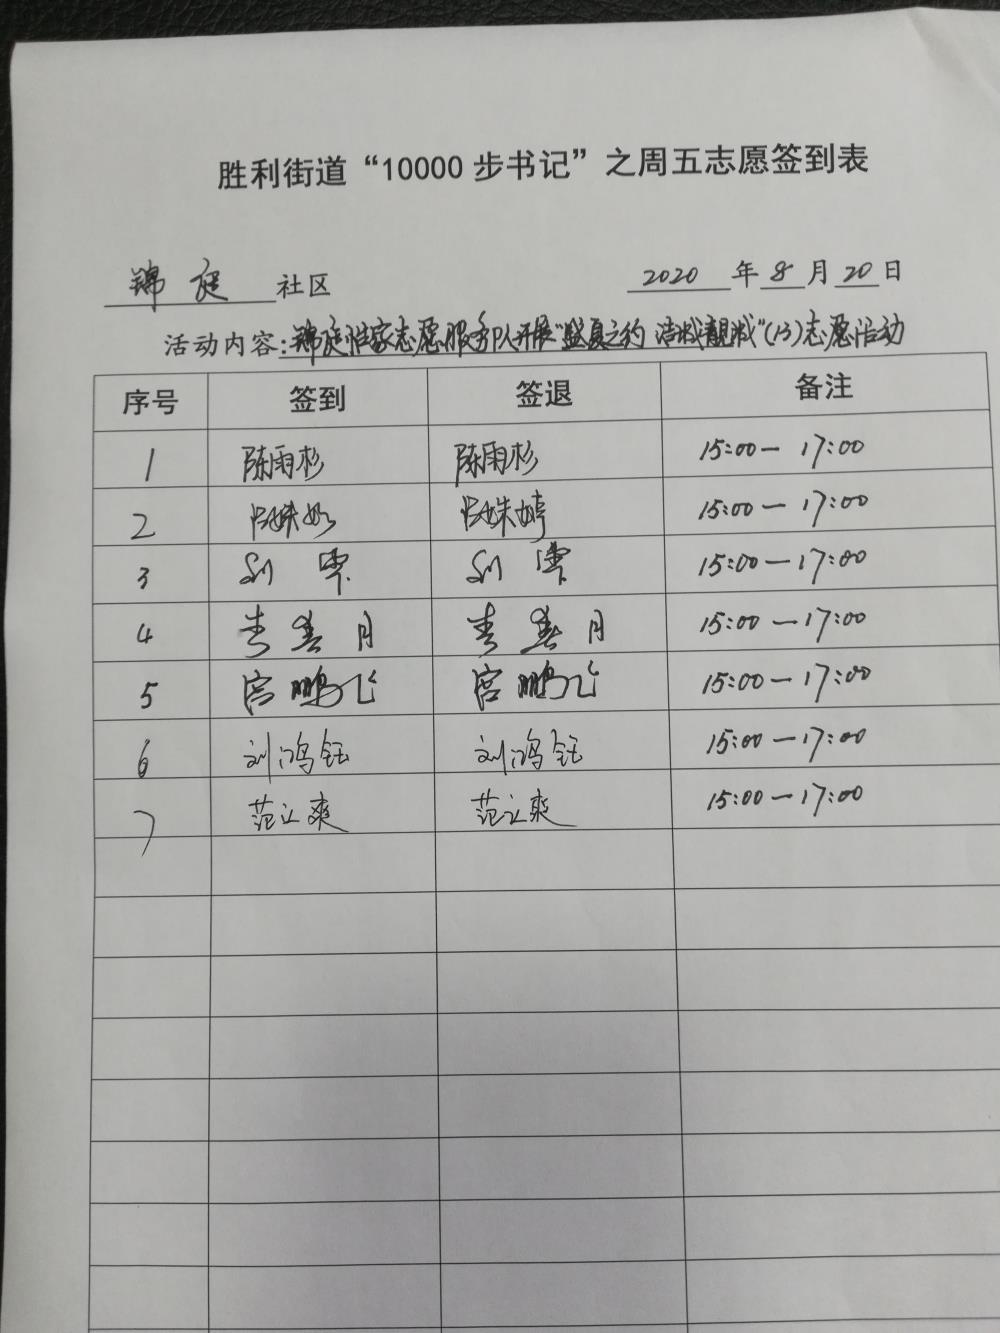 胜利街道“10000步书记”之周五志愿签到表
锦庭社区 2020年8月20日
活动内容:锦庭恒家志愿服务队开展“盛夏之约 洁城靓城”(13)志愿活动
序号 签到 签退 备注
1 陈雨杉 陈雨杉 15:00—17:00
2 15:00—17:00
3 刘霈 刘霈 15:00—17:00
4 李春月 李春月 15:00—17:00
5 宫鹏飞 宫鹏飞 15:00—17:00
6 刘鸿钰 刘鸿钰 15:00—17:00
7 范让爽 范让爽 15:00—17:00